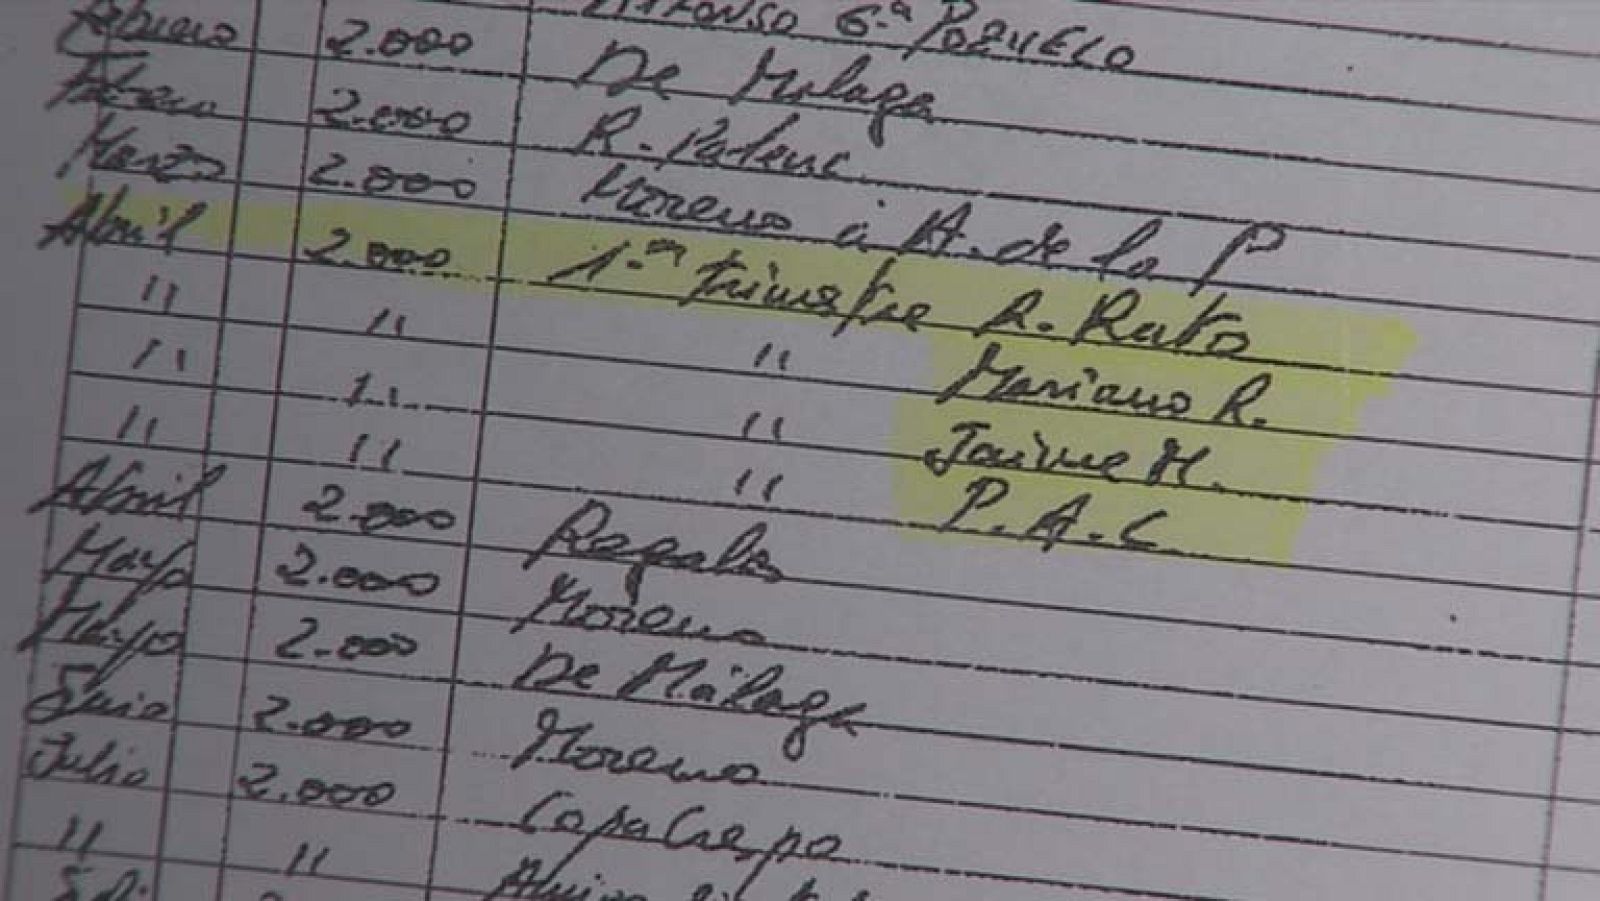 Alfonso G.ª Pozuelo
Febrero 2.000 De Malaga
Febrero 2.000 R. Palenc.
Marzo 2.000 Moreno a A. de la P
Abril 2.000 1.er trimestre R. Rato
" " " Mariano R.
" " " Jaime M.
" " " P.A.C.
Abril 2.000 Regalos
Mayo 2.000 Moreno
Mayo 2.000 De Málaga
Junio 2.000 Moreno
Julio 2.000 Copa Crespo
" "